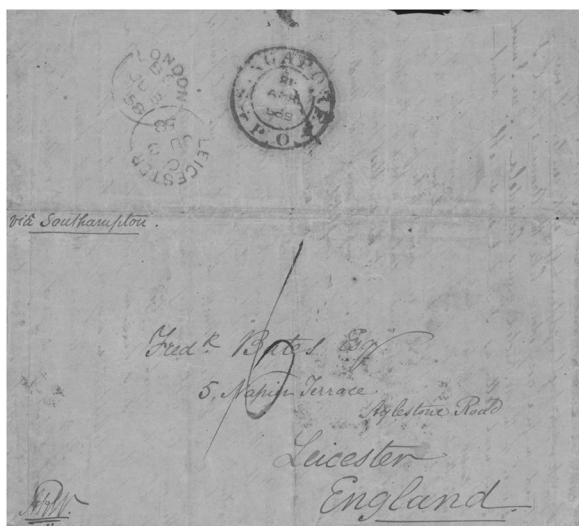 LONDON
SINGAPORE
P.O.
LEICESTER
viâ Southampton.
6
Fredk. Bates Esq
5, Napier Terrace
Aylestone Road
Leicester
England